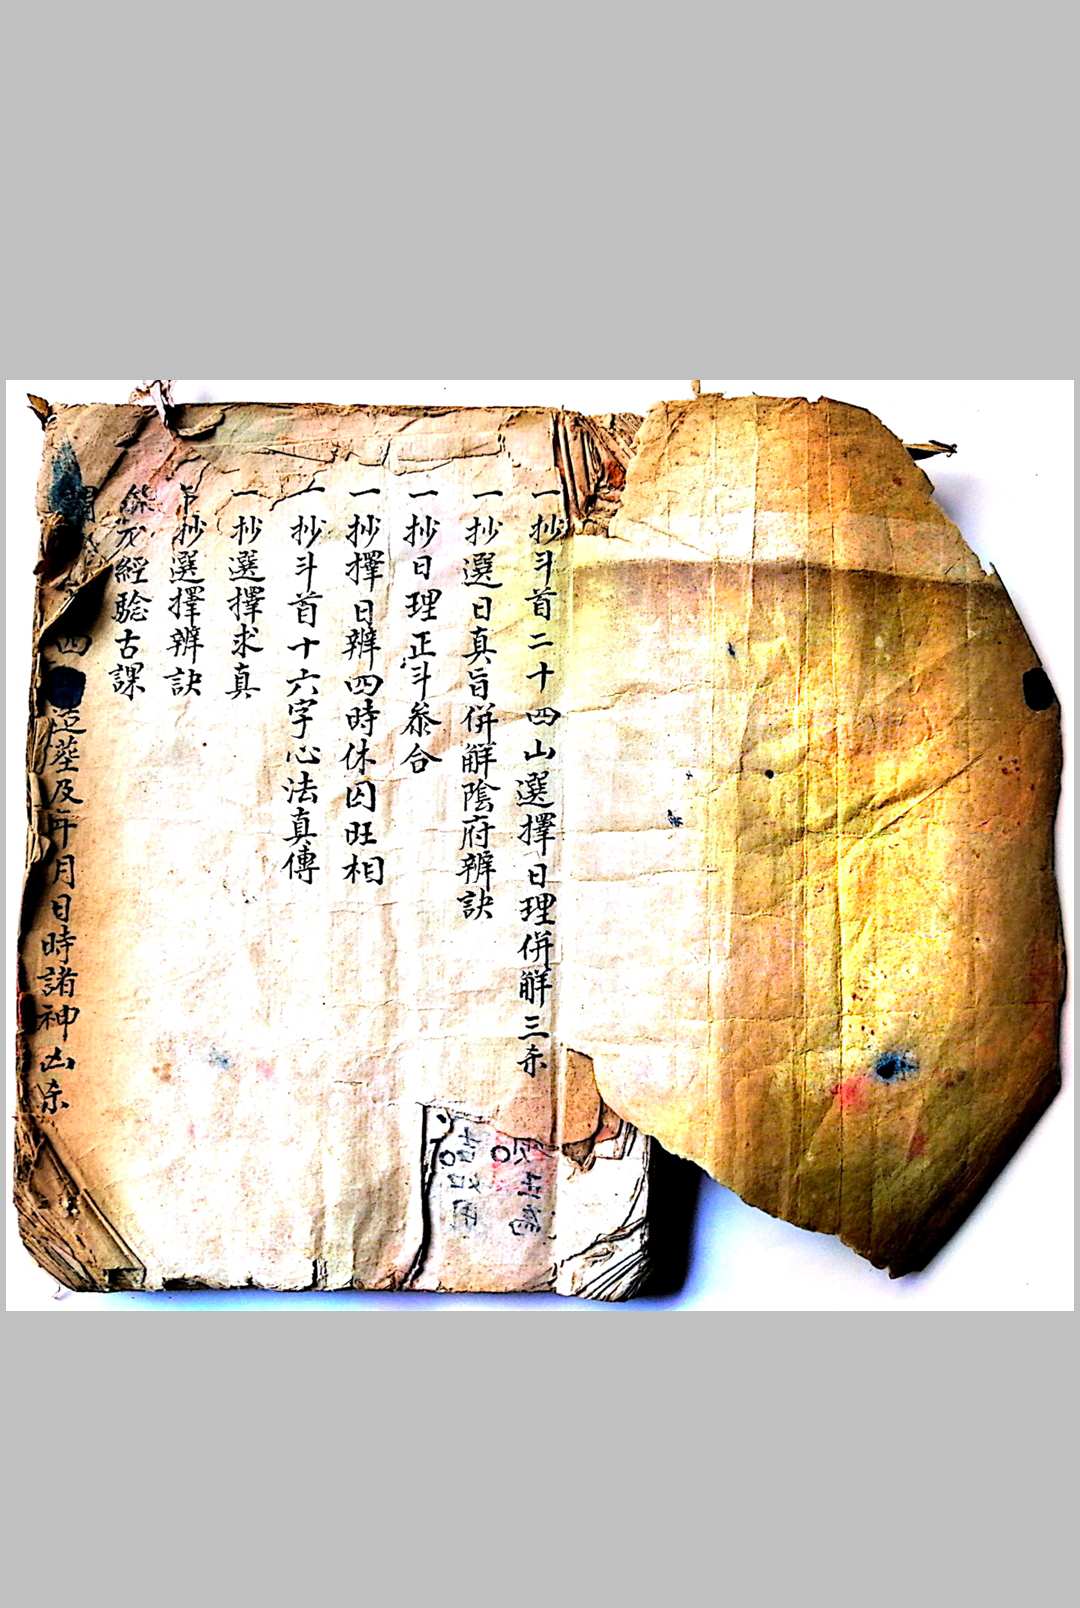 一抄斗首二十四山選擇日理併解三杀
一抄選日真旨併解陰府辨訣
一抄日理正斗叅合
一抄擇日辨四時休囚旺相
一抄斗首十六字心法真傳
一抄選擇求真
抄選擇辨訣
經驗古課
四 造塟及年月日時諸神凶杀